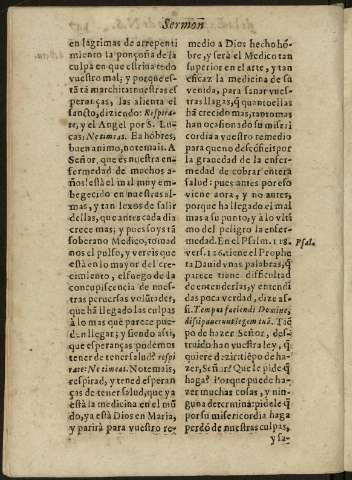 Sermoñ
en lagrimas de arrepenti
miento la ponçoña de la
culpa en que estriua todo
vuestro mal; y porque es-
tã tã marchitas nuestras es
peranças, las alienta el
santo, diziendo: Respira-
te, y el Angel por S. Lu-
cas: Ne timeas. Ea hõbres,
buen animo, no temais. A
Señor, que es nuestra en-
fermedad de muchos a-
ños! està el mal muy em-
begecido en nuestras al-
mas, y tan lexos de salir
dellas, que antes cada dia
crece mas; y pues soys tã
soberano Medico, tomad
nos el pulso, y vereis que
està en lo mayor del cre-
cimiento, el fuego de la
concupiscencia de nues-
tras peruersas volũtades,
que hã llegado las culpas
à lo mas que parece pue-
dẽ llegar; y siendo assi,
que esperanças podemos
tener de tener salud? respi
rate: Ne timeas. No temais,
respirad, y tened esperan
ças de tener salud, que ya
està la medicina en el mũ
do, ya està Dios en Maria,
y parirà para vuestro re-
medio a Dios hecho hõ-
bre, y serà el Medico tan
superior en el arte, y tan
eficaz la medicina de su
venida, para sanar vues-
tras llagas, q̃ quanto ellas
hã crecido mas, tanto mas
han ocasionado su miseri
cordia a vuestro remedio
para que no descõfieis por
la grauedad de la enfer-
medad de cobrar entera
salud: pues antes por esso
viene aora, y no antes,
porque ha llegado el mal
mas a su punto, y à lo vlti
mo del peligro la enfer-
medad. En el Psalm. 118.
Psal.
vers. 126. tiene el Prophe
ta Dauid vnas palabras, q̃
parece tiene dificultad
de entenderlas, y entendi
das poca verdad, dize as-
si. Tempus faciendi Domine,
dissipauerunt legem tuã. Tiẽ
po de hazer Señor, des-
truido han vuestra ley, q̃
quiere dezir: tiẽpo de ha-
zer, Señor? Que le pide q̃
haga? Porque puede ha-
zer muchas cosas, y nin-
guna determina: pidele q̃
por su misericordia haga
perdõ de nuestras culpas,
y sa-